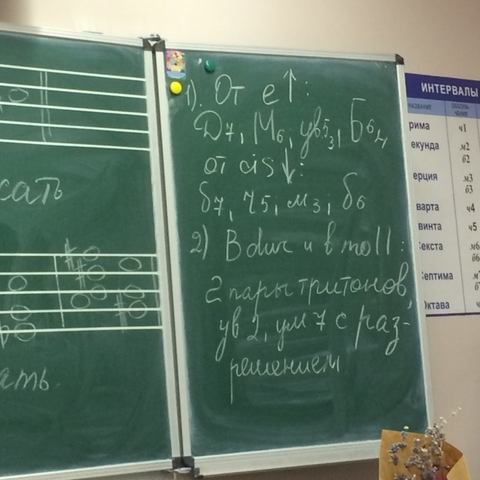 1). От e↑:
Д7, М6, ув5/3, Б6/4
от cis ↓:
б7, ч5, м3, б6
2) B dur и b moll:
2 пары тритонов,
ув2, ум7 с раз-
решением
ИНТЕРВАЛЫ
рима ч1
екунда м2
б2
ерция м3
б3
варта ч4
винта ч5
екста м6
б6
ептима
Октава